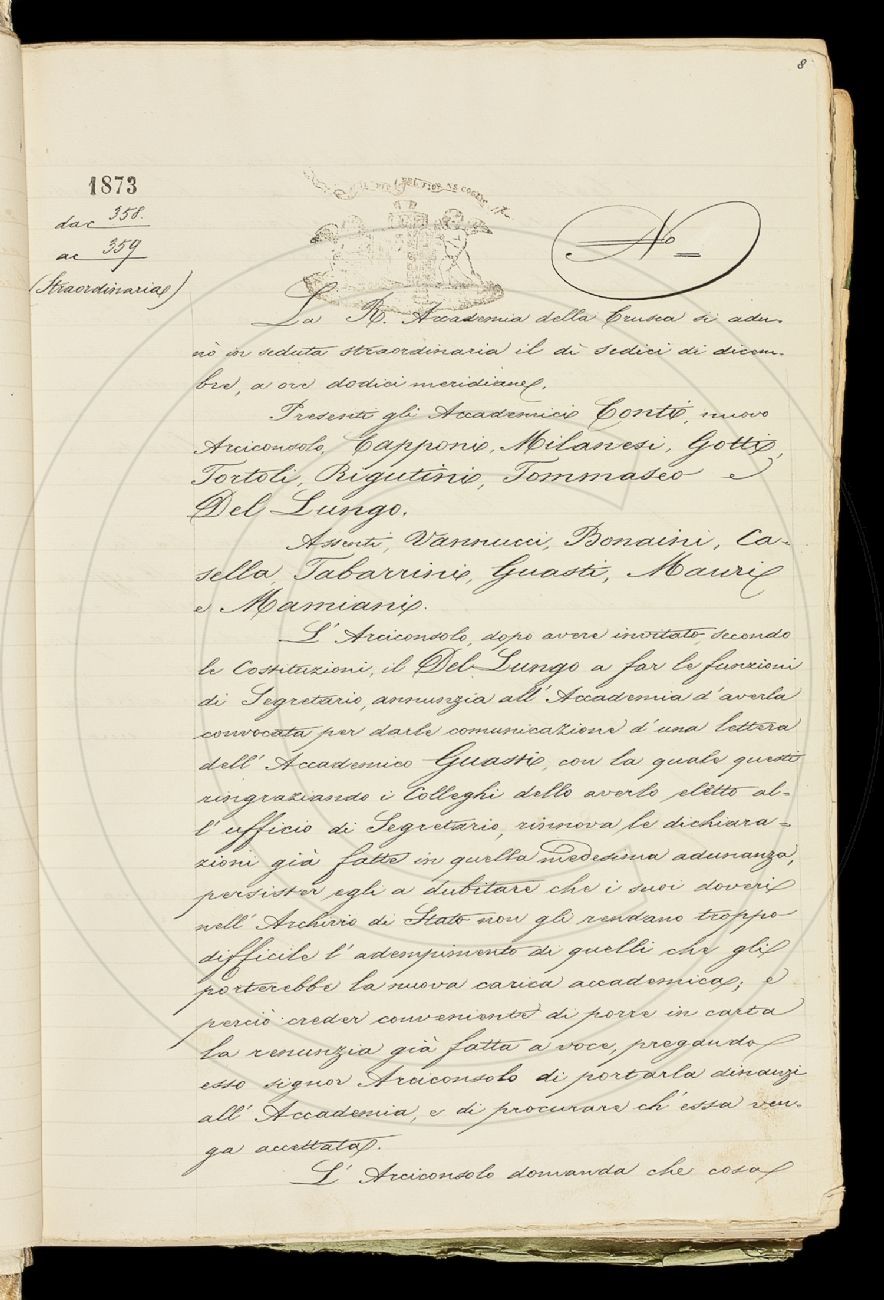 8
1873
da c 358.
ac 359
(Straordinaria)
IL PIÙ BEL FIOR NE COGLIE
N.º
La R. Accademia della Crusca si adu-
nò in seduta straordinaria il dì sedici di dicem-
bre, a ore dodici meridiane.
Presenti gli Accademici Conti, nuovo
Arciconsolo, Capponi, Milanesi, Gotti,
Tortoli, Rigutini, Tommaseo e
Del Lungo.
Assenti, Vannucci, Bonaini, Ca-
sella, Tabarrini, Guasti, Mauri
e Mamiani.
L' Arciconsolo, dopo avere invitato, secondo
le Costituzioni, il Del Lungo a far le funzioni
di Segretario, annunzia all' Accademia d'averla
convocata per darle comunicazione d'una lettera
dell' Accademico Guasti, con la quale questi
ringraziando i Colleghi dello averlo eletto al-
l' ufficio di Segretario, rinnova le dichiara-
zioni già fatte in quella medesima adunanza,
persister egli a dubitare che i suoi doveri
nell' Archivio di Stato non gli rendano troppo
difficile l' adempimento di quelli che gli
porterebbe la nuova carica accademica; e
perciò creder conveniente di porre in carta
la renunzia già fatta a voce, pregando
esso signor Arciconsolo di portarla dinanzi
all' Accademia, e di procurare ch' essa ven-
ga accettata.
L' Arciconsolo domanda che cosa